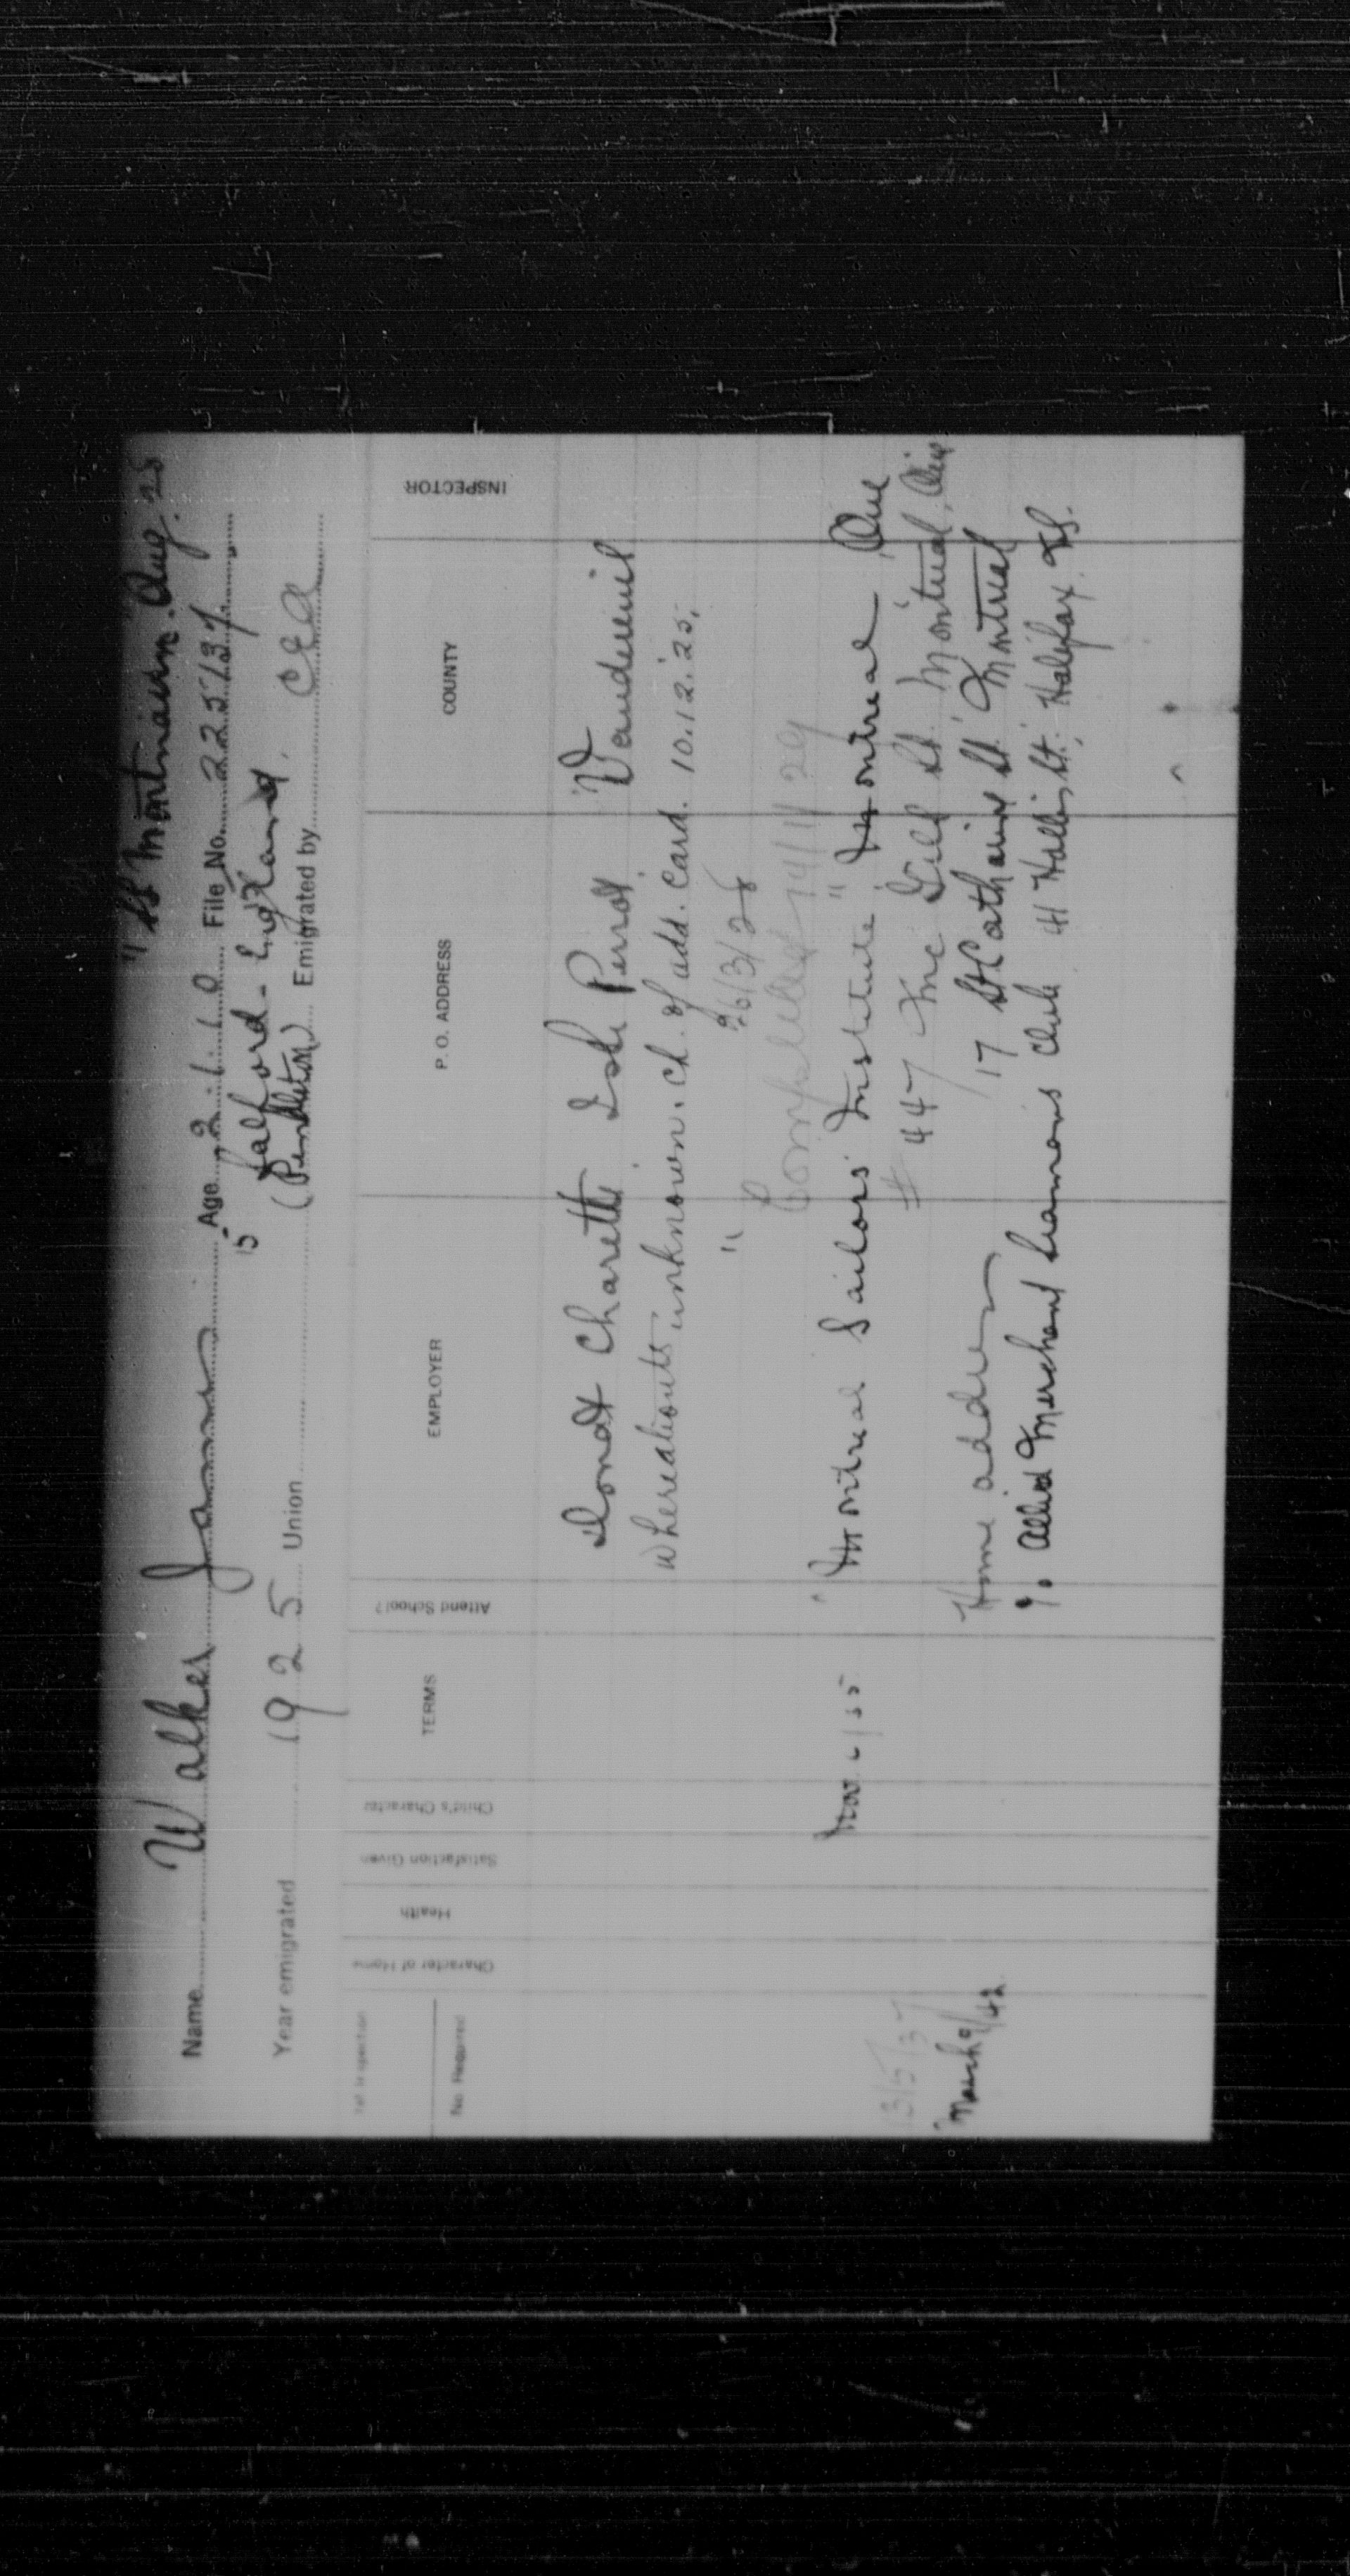 "SS Montnairn. Aug. 25
Name Walker James Age 2.1.10 File No. 225137
15 Salford - England.
Year emigrated 1925 Union (Pendleton) Emigrated by C of E
No. Required
Character of Home
Health
Satisfaction Given
Child's Character
TERMS
Attend School?
EMPLOYER
P. O. ADDRESS
COUNTY
INSPECTOR
Donat Charette Isle Perrot Vaudreuil
Whereabouts unknown. Ch. of add. Card. 10.12.25.
" 26/3/26
Completed 14/11/29
Nov Montreal Sailors' Institute " Montreal Que
3/5/37 # 447 Mc Gill St. Montreal, Que
March 9/42 Home address 17 St Catharine St. Montreal
℅ Allied Merchant Seamans Club 41 Hollis St. Halifax. NS.